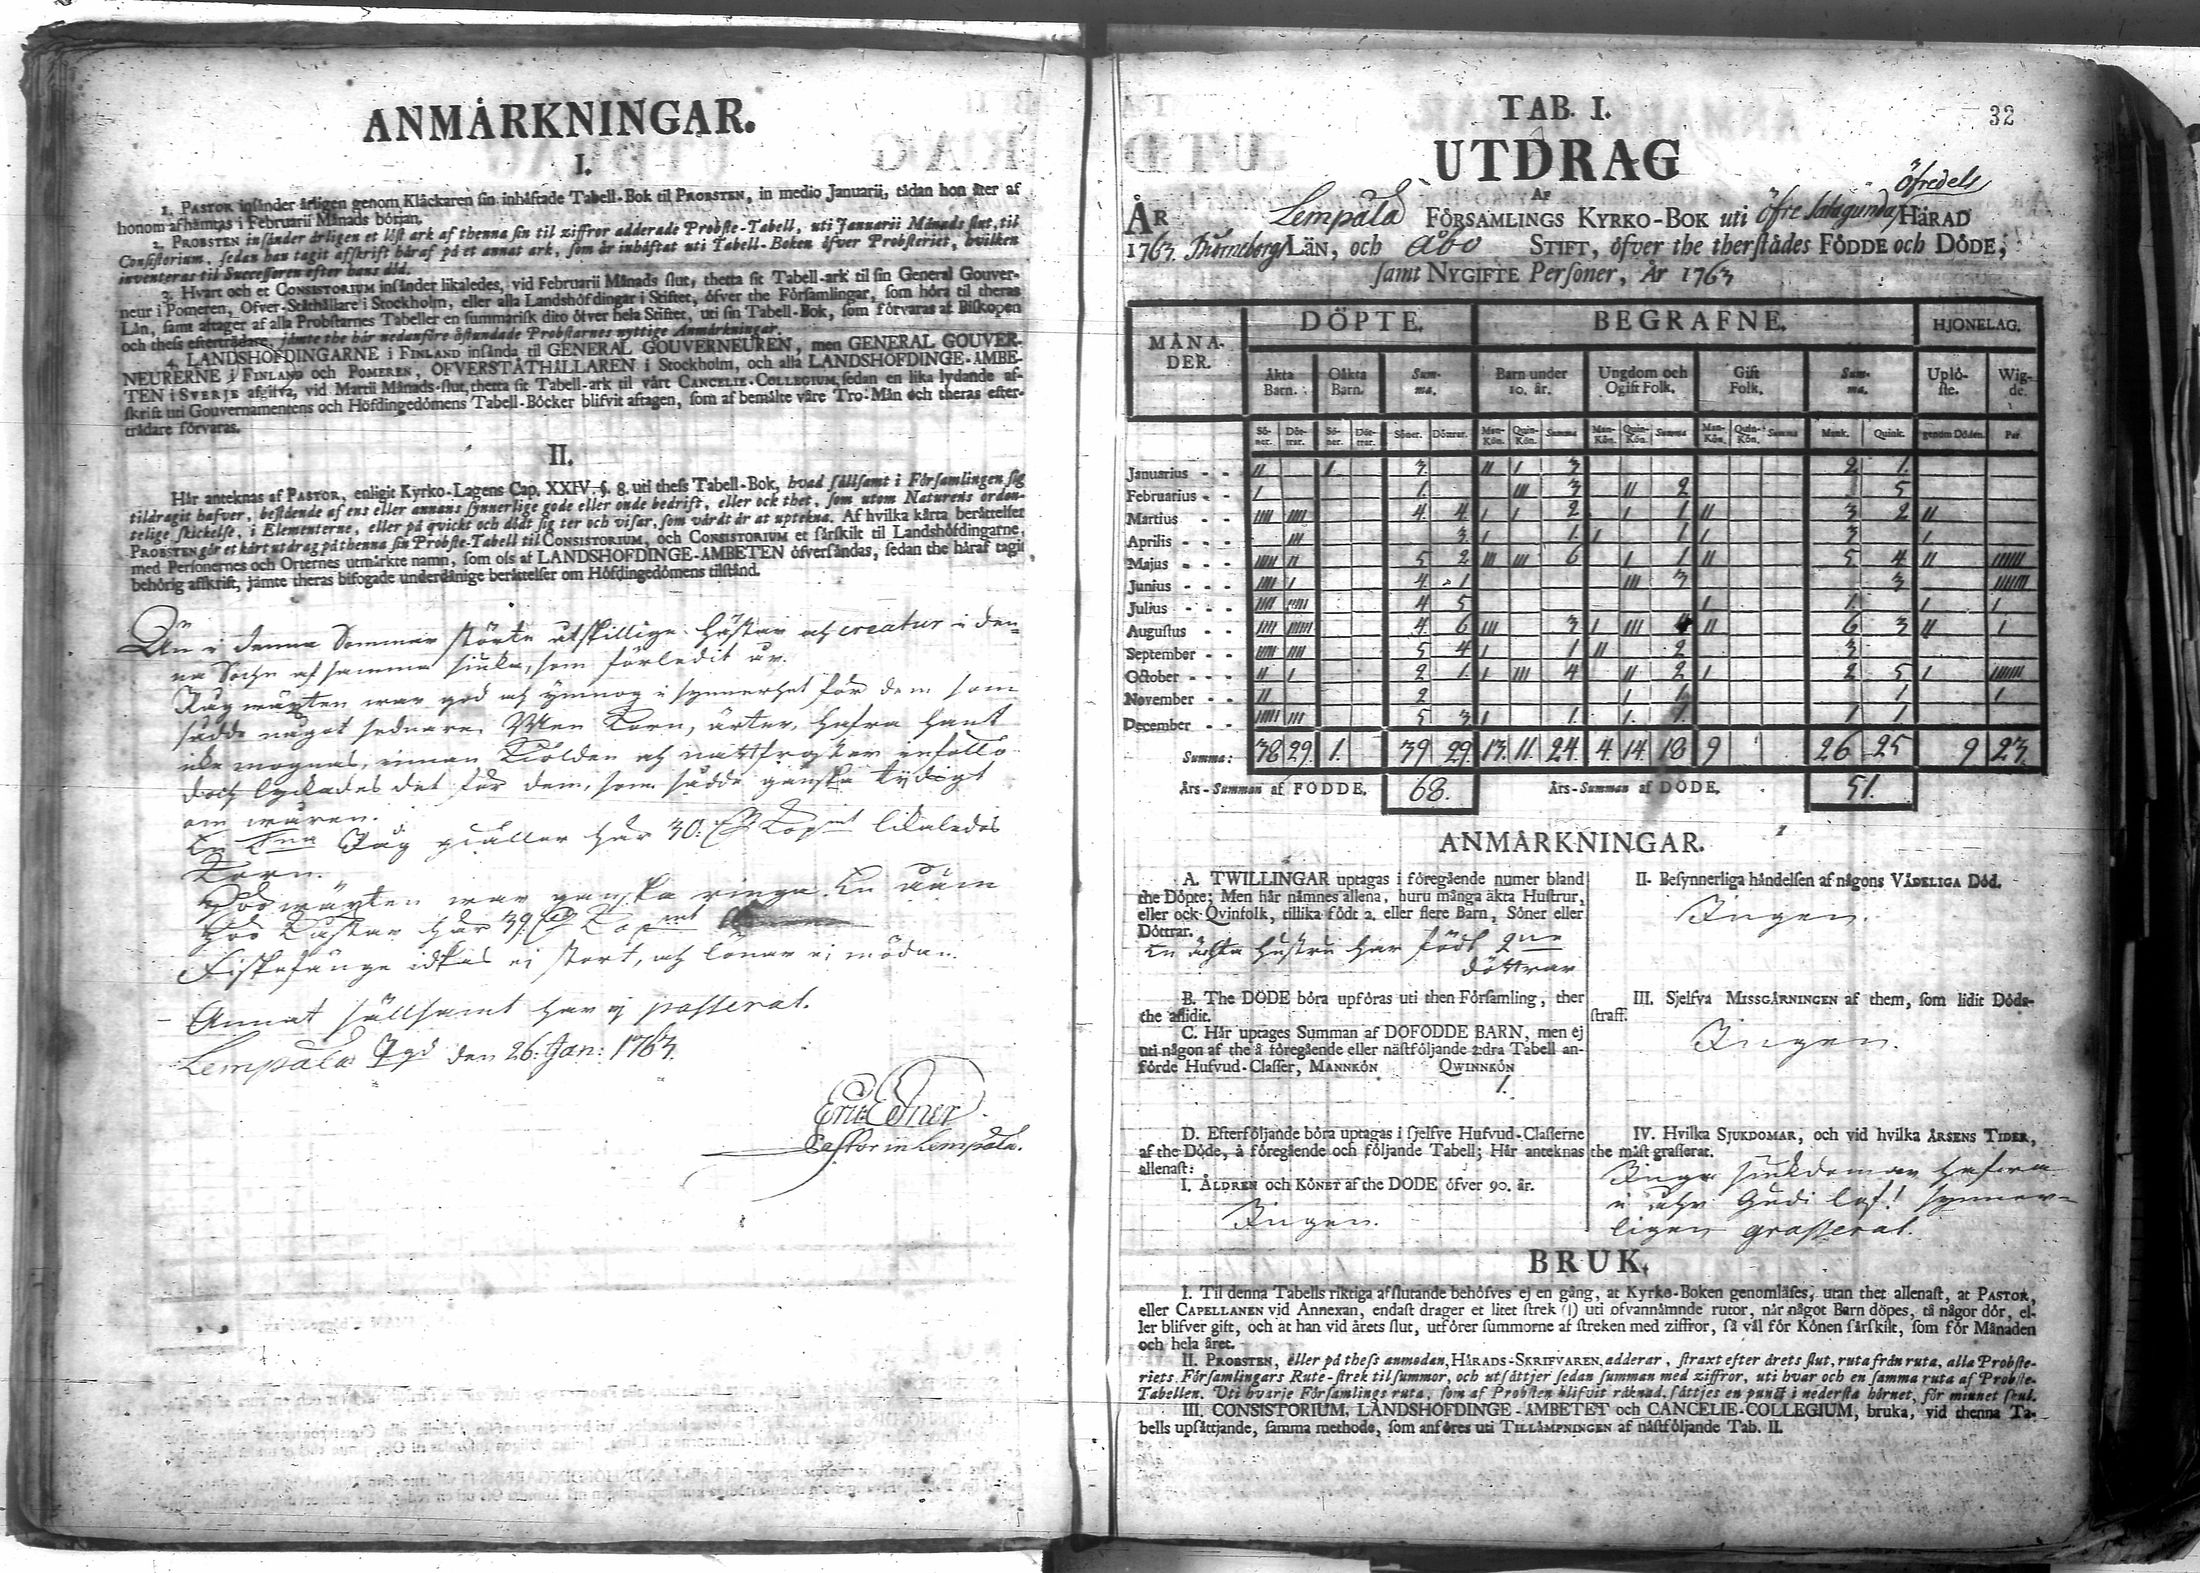 ANMÅRKNINGAR.
I.
1. PASTOR insånder årligen genom Klåckaren sin inhåftade Tabell-Bok til PROBSTEN, in medio Januarii, tådan hon åter af
honom afhåmtas i Februarii Månads början.
2. PROBSTEN insånder årligen et löst ark af thenna sin til ziffror adderade Probste-Tabell, uti Januarii Månads slut, til
Consistorium, sedan han tagit afskrift håraf på et annat ark, som år inhåftat uti Tabell-Boken öfver Probsteriet, hvilken
inventeras til Successoren efter hans död.
3. Hvart och et CONSISTORIUM insånder likaledes, vid Februarii Månads slut, thetta sit Tabell-ark til sin General Gouver-
neur i Pomeren, Öfver-Ståthållare i Stockholm, eller alla Landshöfdingar i Stiftet, öfver the Församlingar, som höra til theras
Län, samt aftager af alla Probstarnes Tabeller en summarisk dito öfver hela Stiftet, uti sin Tabell-Bok, som förvaras af Biskopen
och thess efterträdare, jämte the hår nedanföre åstundade Probstarnes nyttige Anmårkningar.
4. LANDSHÖFDINGARNE i FINLAND insånda til GENERAL GOUVERNEUREN, men GENERAL GOUVER-
NEURERNE i FINLAND och POMEREN, ÖFVERSTÅTHÅLLAREN i Stockholm, och alla LANDSHÖFDINGE-ÅMBE-
TEN i SVERJE afgifva, vid Martii Månads-slut, thetta sit Tabell-ark til vårt CANCELIE-COLLEGIUM, sedan en lika lydande af-
skrift uti Gouvernamentens och Höfdingedömens Tabell-Böcker blifvit aftagen, som af bemålte våre Tro-Mån och theras efter-
trådare förvaras.
II.
Hår anteknas af PASTOR, enligit Kyrko-Lagens Cap. XXIV. §. 8. uti thess Tabell-Bok, hvad sållsamt i Församlingen sig
tildragit hafver, bestående af ens eller annans synnerlige gode eller onde bedrift, eller ock thet, som utom Naturens orden-
telige skickelse, i Elementerne, eller på qvickt och dödt sig ter och visar, som vårdt år at uptekna. Af hvilka kårta beråttelser
PROBSTEN gör et kårt utdrag på thenna sin Probste-Tabell til CONSISTORIUM, och CONSISTORIUM et sårskilt til Landshöfdingarne,
med Personernes och Orternes utmårkte namn, som oss af LANDSHÖFDINGE-ÅMBETEN öfversåndas, sedan the håraf tagit
behörig affskrift, jåmte theras bifogade underdånige beråttelser om Höfdingedömens tilstånd.
Än i denna Sommar störte åtskillige Hästar och creatur i den-
na Sochn af samma siuka, som förledit år.
Rågwäxten war god och ymnog i synnerhet för dem som
sådde något sednare. Men Korn, ärter, Hafra hant
icke mogna, innan Kiölden och nattfroster inföllo
doch lyckades det för dem, som sådde ganska tydigt
om wåren.
En Tna Råg gäller här 30. Kopmt likaledes
Korn.
Höwäxten war ganska ringa. En
Hö kåstar här 39. Kopmt
Fiskefänge idkas ei stort, och lönar ei mödan.
Annat sällsamt har ej passerat.
Lempälä Pgd den 26. Jan: 1763.
Eric Edner
Pastor in Lempälä.
32
TAB. I.
UTDRAG
AF
Öfredels
ÅR Lempälä FÖRSAMLINGS KYRKO-BOK uti Öfre Satagunda HÅRAD
1763. Biörneborgs LÄN, och Åbo STIFT, öfver the therstådes FÖDDE och DÖDE,
samt NYGIFTE Personer, År 1763
MÅNA-
DER. DÖPTE. BEGRAFNE. HJONELAG.
Åkta Barn. Oåkta Barn. Sum-ma. Barn under 10. år. Ungdom och Ogift Folk. Gift Folk. Sum-ma. Uplö-ste. Wig-de.
Sö-ner. Döt-trar. Sö-ner. Döt-trar. Söner. Döttrar. Man-Kön. Quin-Kön. Summa Man-Kön. Quin-Kön. Summa Man-Kön. Quin-Kön. Summa Mank. Quink. genom Döden. Par
Januarius - - II 1. 3. II I 3 2 1.
Februarius - - I 1. III 3 II 2 5
Martius - - IIII IIII 4 4 I I 2 I I II 3 2 II
Aprilis - - III 3 I 1 I I 1 I 3 I
Majus - - IIIII II 5 2 III III 6 I 1 II 5 4 II IIIIII
Junius - - IIII I 4 1 III 3 3 IIIIII
Julius - - IIII IIIII 4 5 I 1. I I
Augustus - - IIII IIIIII 4 6 III 3 I III 4 II 6 3 II I
September - - IIIII IIII 5 4 I 1 II 2 3
October - - II I 2 1 I III 4 II 2 I 2 5 I IIIIII
November - - II 2 I 1 1 I
December - - IIIII III 5 3 I 1. I 1 1 1
Summa: 38 29. 1. 39 29. 13. 11. 24. 4. 14. 18 9 26 25 9 23.
Års-Summan af FÖDDE. 68. Års-Summan af DÖDE. 51.
ANMÅRKNINGAR.
A. TWILLINGAR uptagas i föregående numer bland
the Döpte; Men hår nåmnes allena, huru många åkta Hustrur,
eller ock Qvinfolk, tillika födt 2. eller flere Barn, Söner eller
Döttrar.
En ächta Hustru har födt 2ne
döttrar
B. The DÖDE böra upföras uti then Församling, ther
the aflidit.
C. Hår uptages Summan af DÖFÖDDE BARN, men ej
uti någon af the å föregående eller nåstföljande 2:dra Tabell an-
förde Hufvud-Classer, MANNKÖN QWINNKÖN
1.
D. Efterföljande böra uptagas i sjelfve Hufvud-Classerne
af the Döde, å föregående och följande Tabell; Hår anteknas
allenast:
I. ÅLDREN och KÖNET af the DÖDE öfver 90. år.
Ingen.
II. Besynnerliga håndelsen af någons VÅDELIGA DÖD.
Ingen.
III. Sjelfva MISSGÅRNINGEN af them, som lidit Döds-
straff.
Ingen.
IV. Hvilka SJUKDOMAR, och vid hvilka ÅRSENS TIDER,
the måst grasserat.
Inga siukdomar hafwa
i åhr Gudi lof! synner-
ligen grasserat.
BRUK.
I. Til denna Tabells riktiga afslutande behöfves ej en gång, at Kyrko-Boken genomlåses, utan thet allenast, at PASTOR,
eller CAPELLANEN vid Annexan, endast drager et litet strek (|) uti ofvannåmnde rutor, når något Barn döpes, tå någor dör, el-
ler blifver gift, och at han vid årets slut, utförer summorne af streken med ziffror, så vål för Könen sårskilt, som för Månaden
och hela året.
II. PROBSTEN, eller på thess anmodan, HÅRADS-SKRIFVAREN adderar, straxt efter årets slut, ruta från ruta, alla Probste-
riets Församlingars Rute-strek til summor, och utsåttjer sedan summan med ziffror, uti hvar och en samma ruta af Probste-
Tabellen. Uti hvarje Församlings ruta, som af Probsten blifvit råknad, såttjes en punct i nedersta hörnet, för minnet skul.
III. CONSISTORIUM, LANDSHÖFDINGE-ÅMBETET och CANCELIE-COLLEGIUM, bruka, vid thenna Ta-
bells upsåttjande, samma methode, som anföres uti TILLÅMPNINGEN af nåstföljande Tab. II.